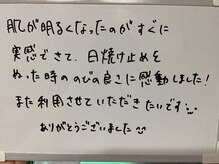 肌が明るくなったのがすぐに
実感できて、日焼け止めを
ぬった時ののびの良さに感動しました!
また利用させていただきたいです
ありがとうございました